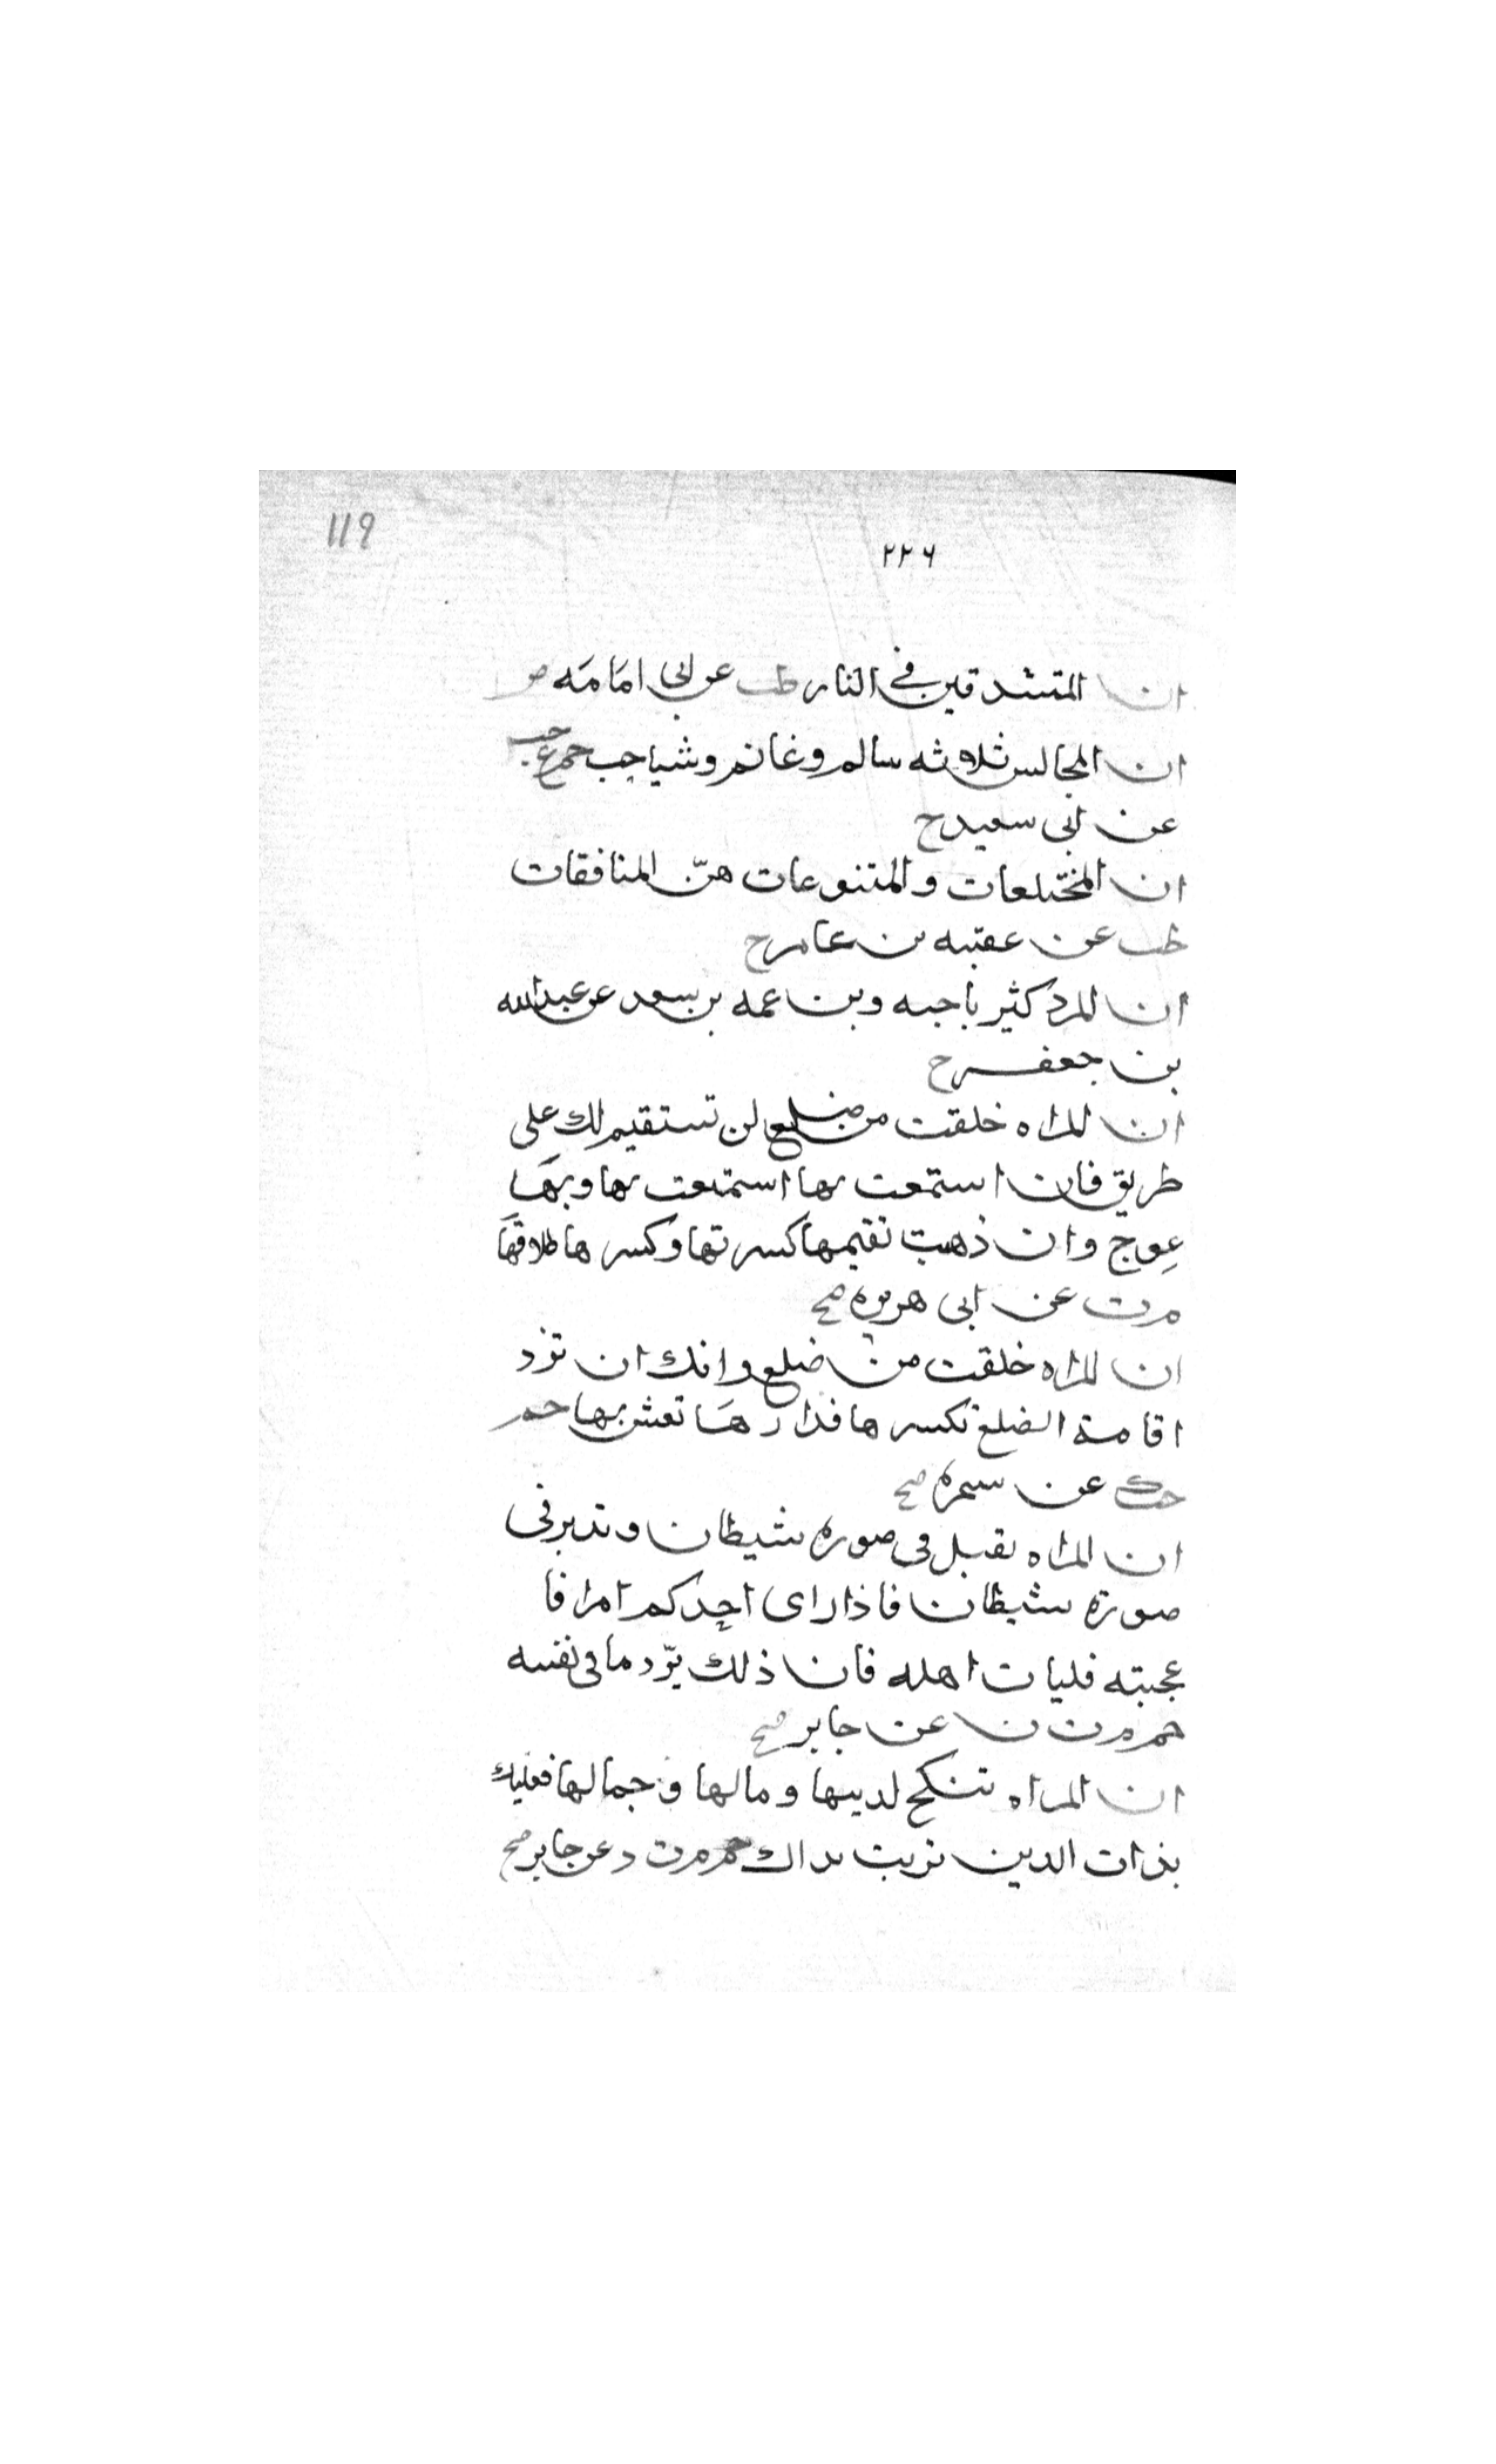 119
٢٢٦
ان المتشدقين في النار طب عن ابى امامه
ان المجالس ثلاثه سالم وغانم وشاجب حم ع حب
عن ابى سعيد ح
ان المختلعات والمتنوعات هنّ المنافقات
طب عن عقبه بن عامر ح
ان المرء كثير باخيه وبن عمه بن سعد عن عبد الله
بن جعفر ح
ان المراه خلقت من ضلع لن تستقيم لك على
طريق فان استمعت بها استمتعت بها وبها
عوج وان ذهبت تقيمها كسرتها وكسرها طلاقها
م ت عن ابى هريره صح
ان المراه خلقت من ضلع وانك ان ترد
اقامة الضلع تكسرها فدارها تعش بها حم
حب ك عن سمره صح
ان المراه تقبل فى صوره شيطان وتدبر فى
صوره شيطان فاذا راى احدكم امراة فا
عجبته فليات اهله فان ذلك يردّ ما فى نفسه
حم م ت ن عن جابر صح
ان المراه تنكح لدينها ومالها وجمالها فعليك
بذات الدين تربت يداك حم م ت د عن جابر صح